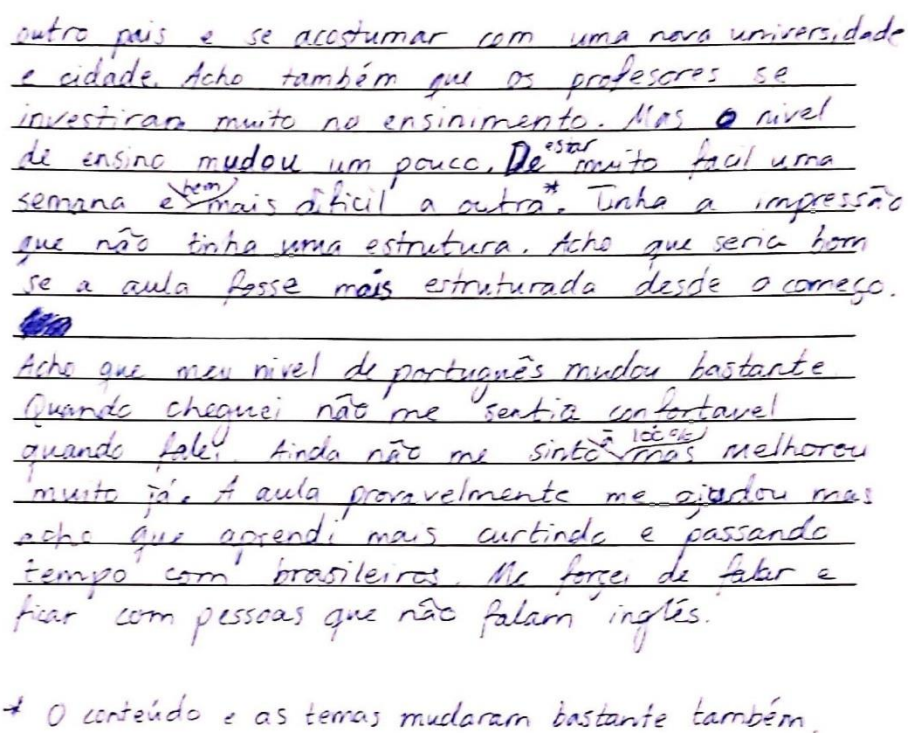 outro pais e se acostumar com uma nova universidade
e cidade. Acho também que os profesores se
investiram muito no ensinimento. Mas o nivel
de ensino mudou um pouco. De estar muito facil uma
semana e bem mais dificil a outra*. Tinha a impressão
que não tinha uma estrutura. Acho que seria bom
se a aula fosse mais estruturada desde o começo.
Acho que meu nivel de português mudou bastante
Quando cheguei não me sentia confortavel
quando falei. Ainda não me sinto à 100% mas melhorou
muito já. A aula provavelmente me ajudou mas
acho que aprendi mais curtindo e passando
tempo com brasileiros. Me forçei de falar e
ficar com pessoas que não falam inglês.
* O conteúdo e as temas mudaram bastante também.